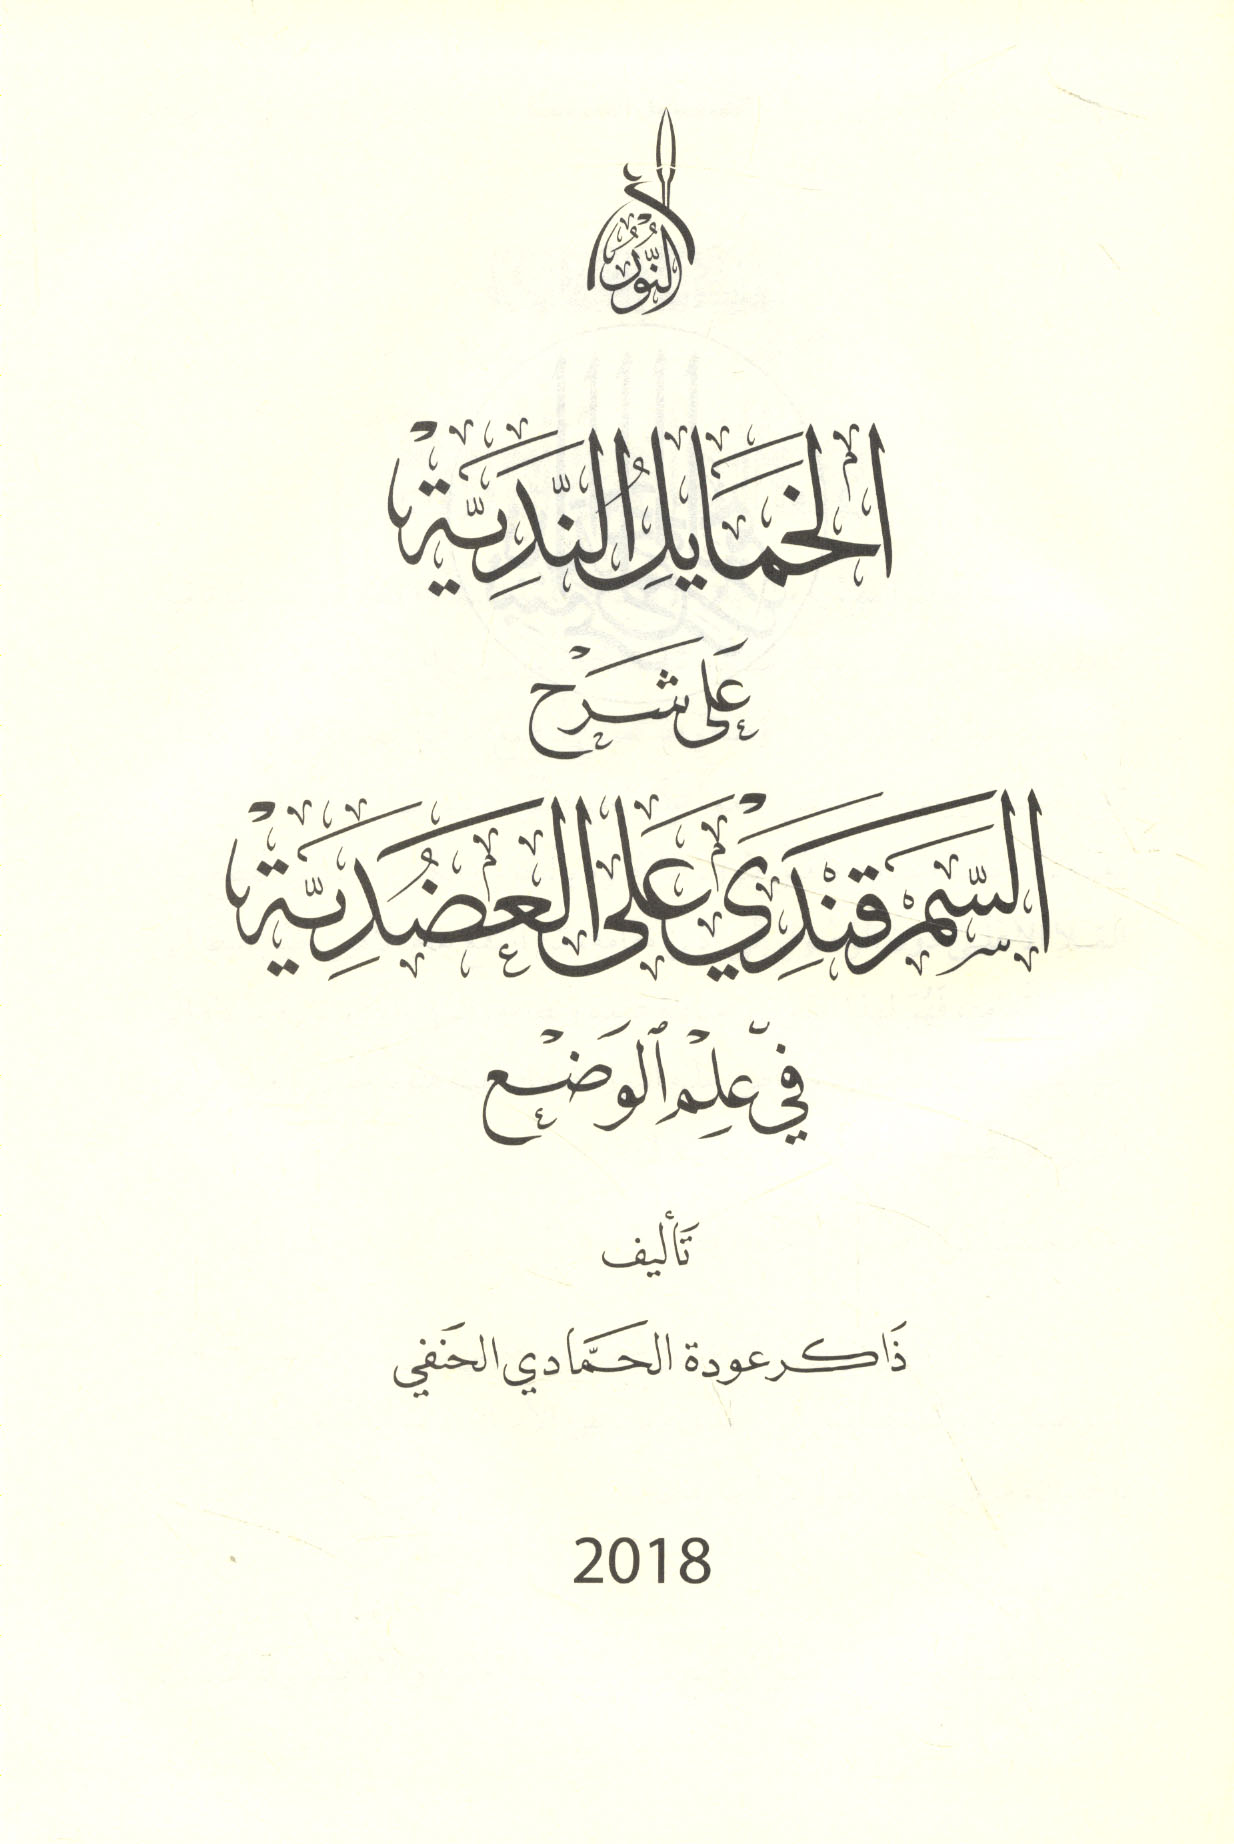 النُّور
الخَمَايِلُ النَّدِيَّة
عَلَى شَرْح
السَّمَرْقَنْدِيْ عَلى العَضُدِيَّة
فِي عِلْمِ ٱلوَضْع
تَأليف
ذَاكر عودة الحَمَّادي الحَنَفي
2018